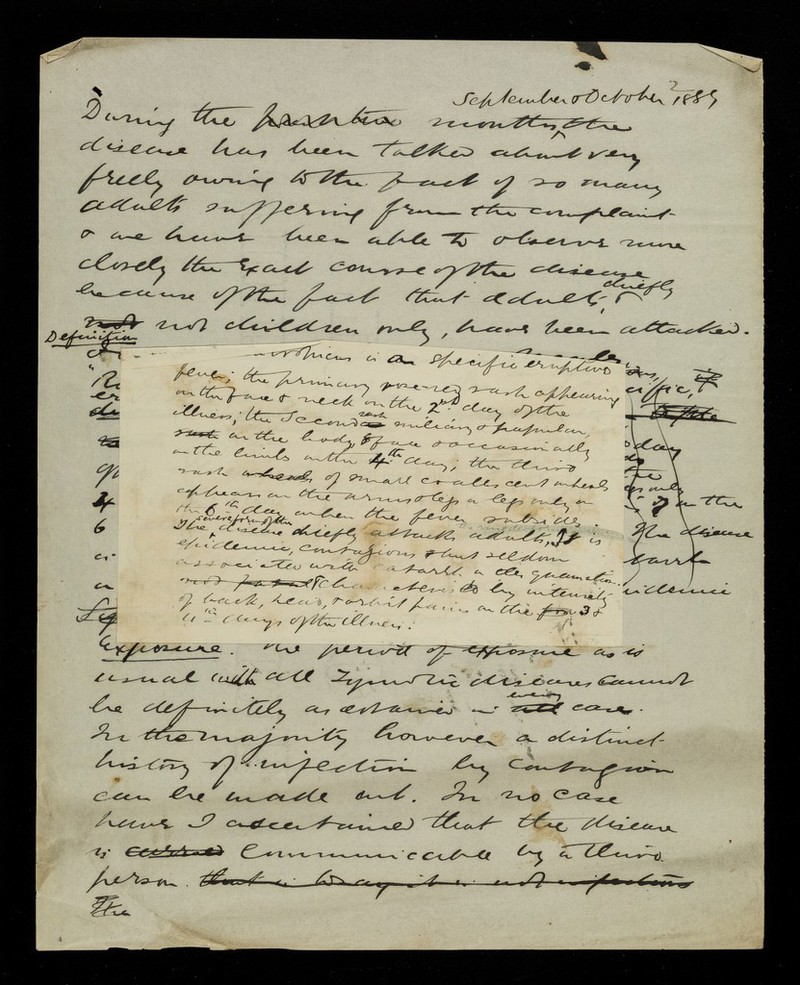 September & October 1889
During the months, the
disease has been talked about very
freely owing to the fact of so many
adults suffering from the complaint
& we have been able to observe more
closely the exact course of the disease
because of the fact that adults, chiefly &
not not children only, have been attacked.
Definition
is a specific eruptive
fever; the primary rash appearing
on the face & neck on the 2nd day of the
illness; the second rash miliary & papular,
rash on the body & face & occasionally
on the limbs on the 4th day; the third
rash of small coalescent wheals
appears on the arms & legs or legs only on
the 6th day when the fever subsides.
The severe form of the disease chiefly attacks adults, It is
epidemic, contagious & but seldom
associated with catarrh or desquamation.
characterised by intensity
of back, head, & orbit pains on the 3 &
4th days of the illness.
day
the
legs only
on the
The disease
Exposure. The period of exposure as is
usual with all Zymotic diseases cannot
be definitely ascertained in all every case.
In the majority however a distinct
history of infection by contagion
can be made out. In no case
have I ascertained that the disease
is communicable by a third
person. that is to say it is not infectious
The